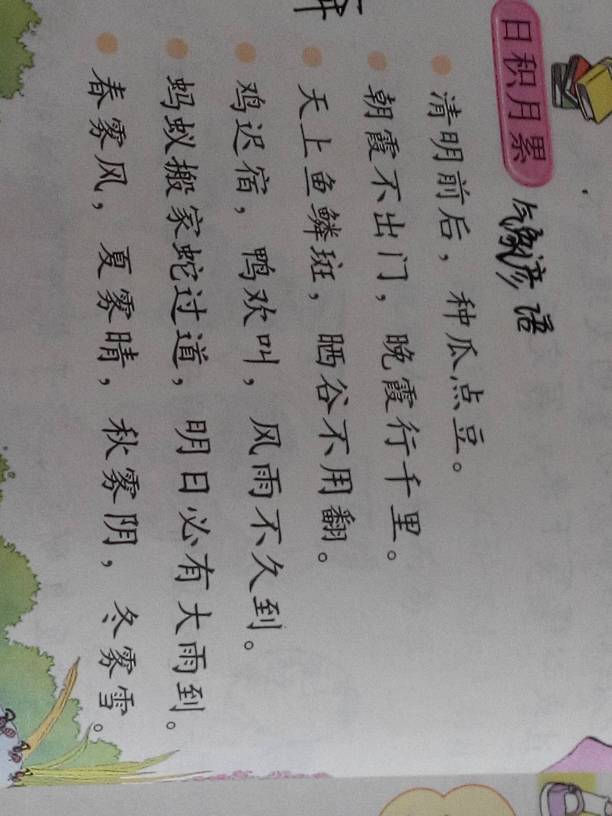 日积月累
气象谚语
清明前后，种瓜点豆。
朝霞不出门，晚霞行千里。
天上鱼鳞斑，晒谷不用翻。
鸡迟宿，鸭欢叫，风雨不久到。
蚂蚁搬家蛇过道，明日必有大雨到。
春雾风，夏雾晴，秋雾阴，冬雾雪。